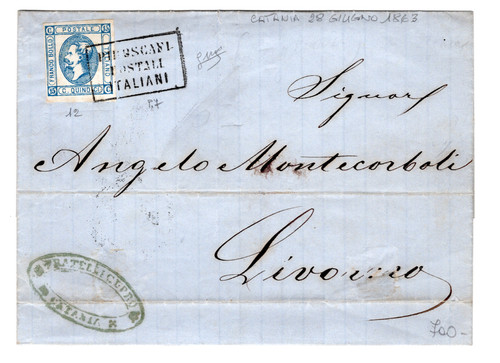 CATANIA 28 GIUGNO 1863
FRANCO BOLLO
POSTALE
C. QUINDICI
PIROSCAFI
POSTALI
ITALIANI
12
Signor
Angelo Montecorboli
Livorno
FRATELLI
CATANIA
700-